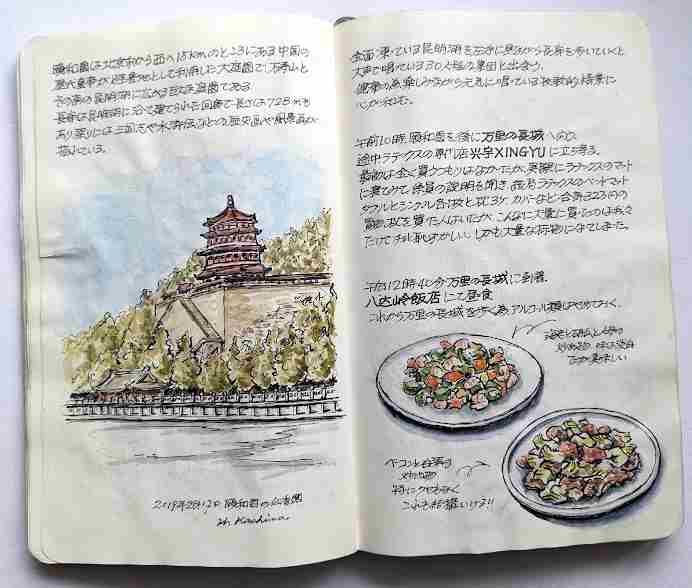 頤和園は北京市内から西へ15kmのところにある中国の
歴代皇帝が避暑地として利用した大庭園で万寿山と
その南の昆明湖に広がる巨大な庭園である
長廊は昆明湖に沿って建てられた回廊で長さは728mも
あり梁りには三国志や水滸伝などの歴史画や風景画が
描かれている。
2019年2月12日 頤和園の仏香閣
H. Kashima
全面凍っている昆明湖を左手に見ながら長廊を歩いていくと
大声で唱っている30人程の集団と出会う。
健康の為楽しみながら元気に唱っている
心が
午前10時 頤和園を後に万里の長城へ向う。
途中ラテックスの専門店兴宇XINGYUに立ち寄る。
最初は全く買うつもりはなかったが、実際にラテックスのマット
に寝てみて係員の説明も聞き ラテックスのベットマット
ダブルとシングル各1枚と枕3ケ カバーなど合計323,000円の
買物、枚を買ったんはいいが、こんなに大量に買ったのは我々
だけで チト恥ずかしい。しかも大量な荷物になってしまった。
午后12時40分 万里の長城に到着
八达岭飯店にて昼食
これから万里の長城を歩く為 アルコール類はやめておく、
海老と
炒め物 味は
美味しい
ベーコンと白菜の
炒め物
特にクセもなく
これも結構いける!!